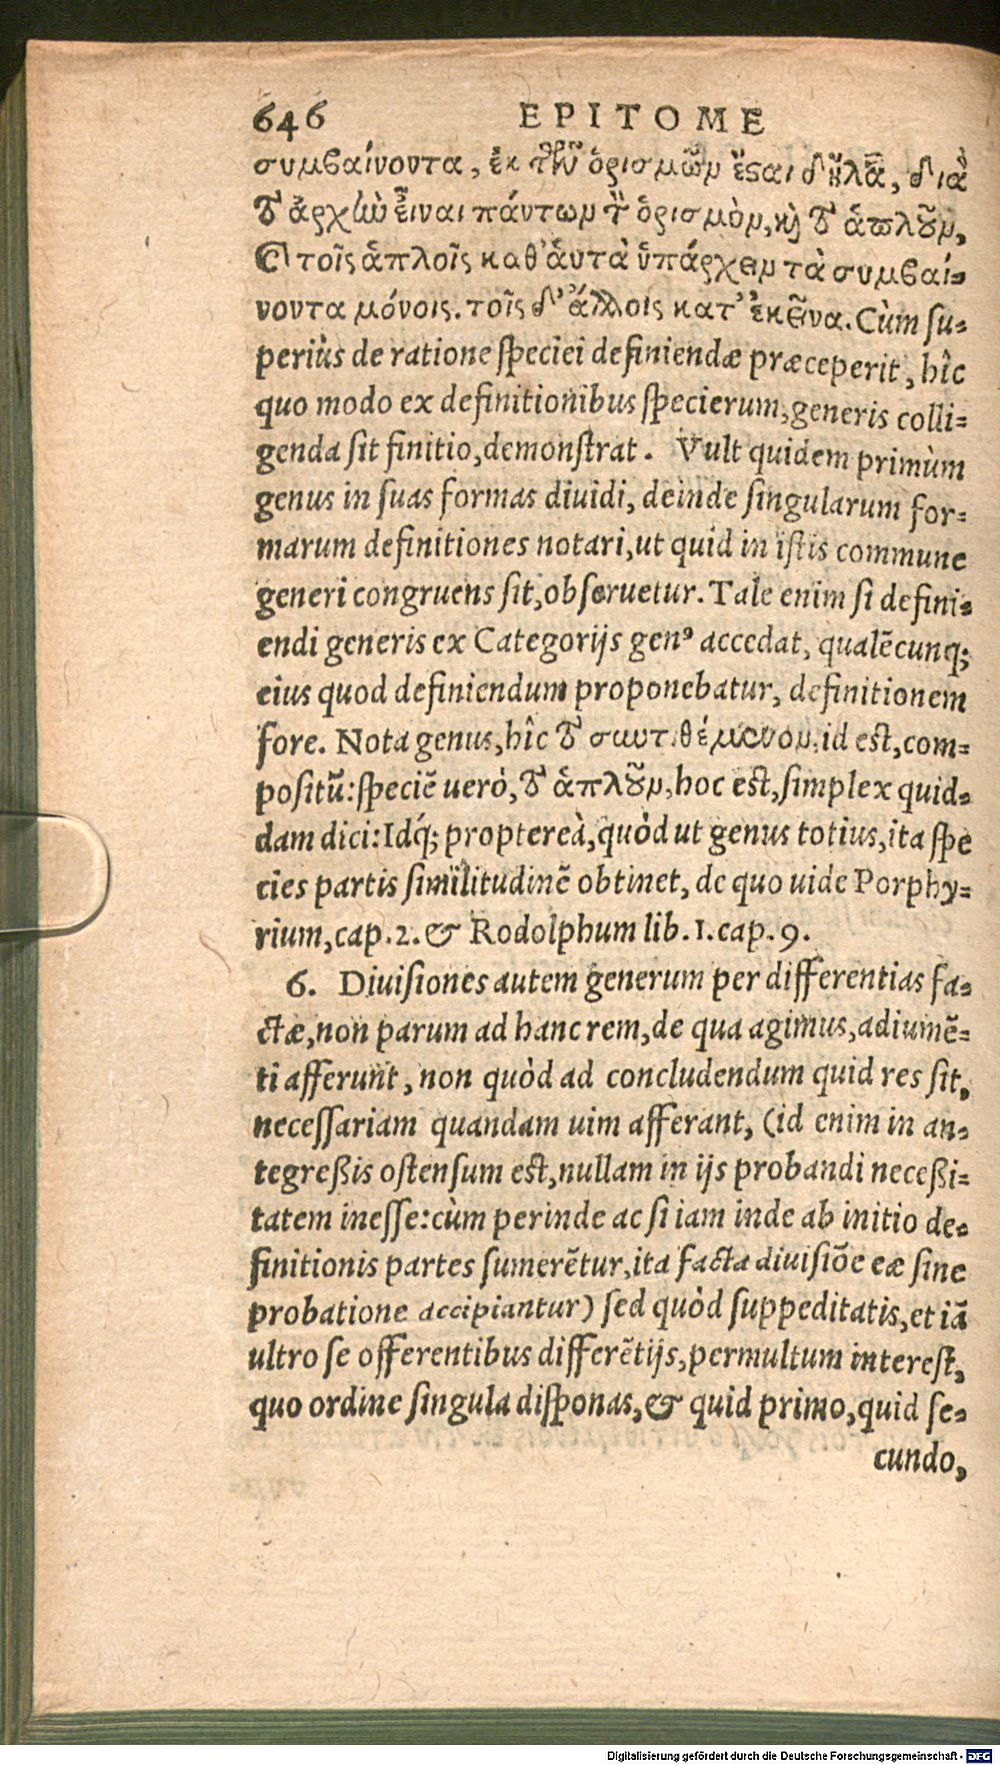 646 EPITOME
συμβαίνοντα, ἐκ τῶν ὁρισμῶν ἔσαι δῆλα, διὰ
τὸ ἀρχὴν εἶναι πάντων τὸν ὁρισμὸν, καὶ τὸ ἁπλοῦν,
καὶ τοῖς ἁπλοῖς καθ' ἁυτὰ ὑπάρχειν τὰ συμβαί-
νοντα μόνοις. τοῖς δ' ἄλλοις κατ' ἐκεῖνα. Cùm ſu-
periùs de ratione ſpeciei definiendæ præceperit, hîc
quo modo ex definitionibus ſpecierum, generis colli-
genda ſit finitio, demonſtrat. Vult quidem primùm
genus in ſuas formas diuidi, deinde ſingularum for-
marum definitiones notari, ut quid in iſtis commune
generi congruens ſit, obſeruetur. Tale enim ſi defini-
endi generis ex Categorijs genꝰ accedat, qualẽcunq;
eius quod definiendum proponebatur, definitionem
fore. Nota genus, hîc τὸ συντιθέμενον, id eſt, com-
poſitũ: ſpeciẽ uerò, τὸ ἁπλοῦν, hoc eſt, ſimplex quid-
dam dici: Idq́; proptereà, quòd ut genus totius, ita ſpe
cies partis ſimilitudinẽ obtinet, de quo uide Porphy-
rium, cap. 2. & Rodolphum lib. 1. cap. 9.
6. Diuiſiones autem generum per differentias fa-
ctæ, non parum ad hanc rem, de qua agimus, adiumẽ-
ti afferunt, non quòd ad concludendum quid res ſit,
neceſſariam quandam uim afferant, (id enim in an-
tegreßis oſtenſum eſt, nullam in ijs probandi neceßi-
tatem ineſſe: cùm perinde ac ſi iam inde ab initio de-
finitionis partes ſumerẽtur, ita facta diuiſiõe eæ ſine
probatione accipiantur) ſed quòd ſuppeditatis, et iã
ultro ſe offerentibus differẽtijs, permultum intereſt,
quo ordine ſingula diſponas, & quid primo, quid ſe-
cundo,
Digitalisierung gefördert durch die Deutsche Forschungsgemeinschaft - DFG